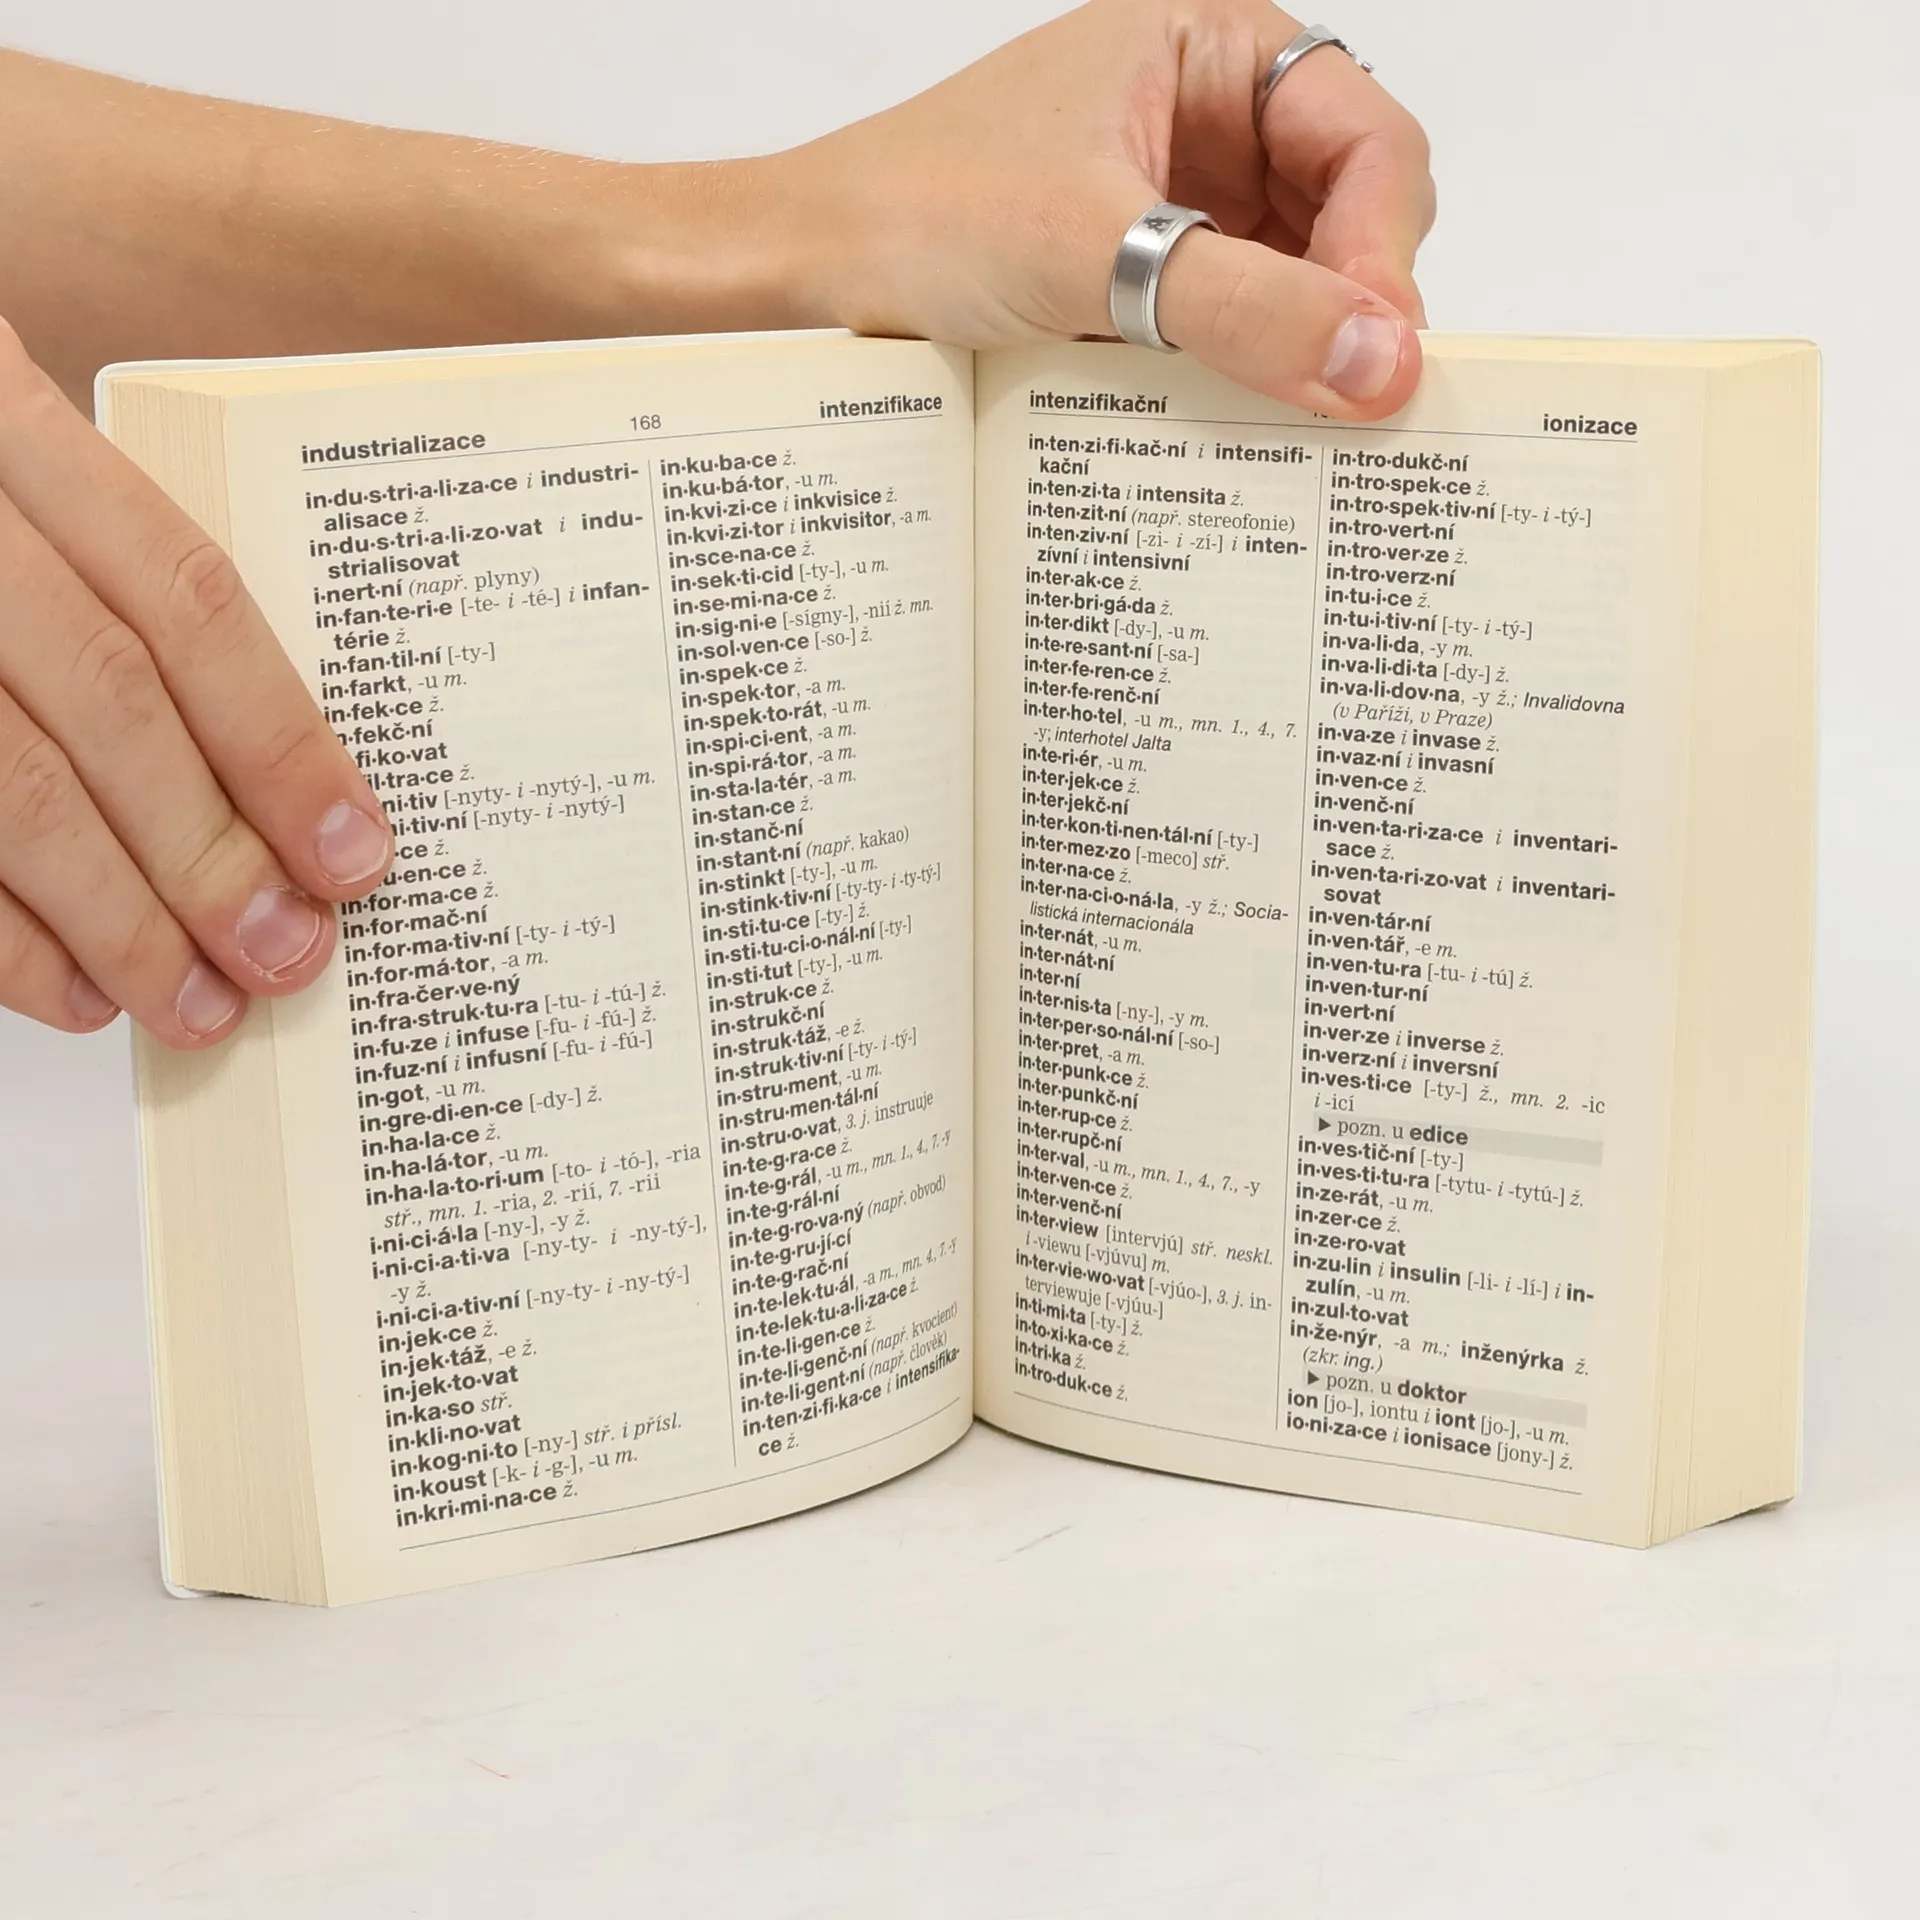 industrializace 168 intenzifikace
in·du·s·tri·a·li·za·ce i industri-
alisace ž.
in·du·s·tri·a·li·zo·vat i indu-
strialisovat
i·nert·ní (např. plyny)
in·fan·te·ri·e [-te- i -té-] i infan-
térie ž.
in·fan·til·ní [-ty-]
in·farkt, -u m.
in·fek·ce ž.
n·fekč·ní
fi·ko·vat
il·tra·ce ž.
ni·tiv [-nyty- i -nytý-], -u m.
ni·tiv·ní [-nyty- i -nytý-]
·ce ž.
u·en·ce ž.
in·for·ma·ce ž.
in·for·mač·ní
in·for·ma·tiv·ní [-ty- i -tý-]
in·for·má·tor, -a m.
in·fra·čer·ve·ný
in·fra·struk·tu·ra [-tu- i -tú-] ž.
in·fu·ze i infuse [-fu- i -fú-] ž.
in·fuz·ní i infusní [-fu- i -fú-]
in·got, -u m.
in·gre·di·en·ce [-dy-] ž.
in·ha·la·ce ž.
in·ha·lá·tor, -u m.
in·ha·la·to·ri·um [-to- i -tó-], -ria
stř., mn. 1. -ria, 2. -rií, 7. -rii
i·ni·ci·á·la [-ny-], -y ž.
i·ni·ci·a·ti·va [-ny-ty- i -ny-tý-],
-y ž.
i·ni·ci·a·tiv·ní [-ny-ty- i -ny-tý-]
in·jek·ce ž.
in·jek·táž, -e ž.
in·jek·to·vat
in·ka·so stř.
in·kli·no·vat
in·kog·ni·to [-ny-] stř. i přísl.
in·koust [-k- i -g-], -u m.
in·kri·mi·na·ce ž.
in·ku·ba·ce ž.
in·ku·bá·tor, -u m.
in·kvi·zi·ce i inkvisice ž.
in·kvi·zi·tor i inkvisitor, -a m.
in·sce·na·ce ž.
in·sek·ti·cid [-ty-], -u m.
in·se·mi·na·ce ž.
in·sig·ni·e [-sígny-], -nií ž. mn.
in·sol·ven·ce [-so-] ž.
in·spek·ce ž.
in·spek·tor, -a m.
in·spek·to·rát, -u m.
in·spi·ci·ent, -a m.
in·spi·rá·tor, -a m.
in·sta·la·tér, -a m.
in·stan·ce ž.
in·stanč·ní
in·stant·ní (např. kakao)
in·stinkt [-ty-], -u m.
in·stink·tiv·ní [-ty-ty- i -ty-tý-]
in·sti·tu·ce [-ty-] ž.
in·sti·tu·ci·o·nál·ní [-ty-]
in·sti·tut [-ty-], -u m.
in·struk·ce ž.
in·strukč·ní
in·struk·táž, -e ž.
in·struk·tiv·ní [-ty- i -tý-]
in·stru·ment, -u m.
in·stru·men·tál·ní
in·stru·o·vat, 3. j. instruuje
in·te·g·ra·ce ž.
in·te·g·rál, -u m., mn. 1., 4., 7. -y
in·te·g·rál·ní
in·te·g·ro·va·ný (např. obvod)
in·te·g·ru·jí·cí
in·te·g·rač·ní
in·te·lek·tu·ál, -a m., mn. 4., 7. -y
in·te·lek·tu·a·li·za·ce ž.
in·te·li·gen·ce ž.
in·te·li·genč·ní (např. kvocient)
in·te·li·gent·ní (např. člověk)
in·ten·zi·fi·ka·ce i intensifika-
ce ž.
intenzifikační ionizace
in·ten·zi·fi·kač·ní i intensifi-
kační
in·ten·zi·ta i intensita ž.
in·ten·zit·ní (např. stereofonie)
in·ten·ziv·ní [-zi- i -zí-] i inten-
zívní i intensivní
in·ter·ak·ce ž.
in·ter·bri·gá·da ž.
in·ter·dikt [-dy-], -u m.
in·te·re·sant·ní [-sa-]
in·ter·fe·ren·ce ž.
in·ter·fe·renč·ní
in·ter·ho·tel, -u m., mn. 1., 4., 7.
-y; interhotel Jalta
in·te·ri·ér, -u m.
in·ter·jek·ce ž.
in·ter·jekč·ní
in·ter·kon·ti·nen·tál·ní [-ty-]
in·ter·mez·zo [-meco] stř.
in·ter·na·ce ž.
in·ter·na·ci·o·ná·la, -y ž.; Socia-
listická internacionála
in·ter·nát, -u m.
in·ter·nát·ní
in·ter·ní
in·ter·nis·ta [-ny-], -y m.
in·ter·per·so·nál·ní [-so-]
in·ter·pret, -a m.
in·ter·punk·ce ž.
in·ter·punkč·ní
in·ter·rup·ce ž.
in·ter·rupč·ní
in·ter·val, -u m., mn. 1., 4., 7., -y
in·ter·ven·ce ž.
in·ter·venč·ní
in·ter·view [intervjú] stř. neskl.
i -viewu [-vjúvu] m.
in·ter·vie·wo·vat [-vjúo-], 3. j. in-
terviewuje [-vjúu-]
in·ti·mi·ta [-ty-] ž.
in·to·xi·ka·ce ž.
in·tri·ka ž.
in·tro·duk·ce ž.
in·tro·dukč·ní
in·tro·spek·ce ž.
in·tro·spek·tiv·ní [-ty- i -tý-]
in·tro·vert·ní
in·tro·ver·ze ž.
in·tro·verz·ní
in·tu·i·ce ž.
in·tu·i·tiv·ní [-ty- i -tý-]
in·va·li·da, -y m.
in·va·li·di·ta [-dy-] ž.
in·va·li·dov·na, -y ž.; Invalidovna
(v Paříži, v Praze)
in·va·ze i invase ž.
in·vaz·ní i invasní
in·ven·ce ž.
in·venč·ní
in·ven·ta·ri·za·ce i inventari-
sace ž.
in·ven·ta·ri·zo·vat i inventari-
sovat
in·ven·tár·ní
in·ven·tář, -e m.
in·ven·tu·ra [-tu- i -tú] ž.
in·ven·tur·ní
in·vert·ní
in·ver·ze i inverse ž.
in·verz·ní i inversní
in·ves·ti·ce [-ty-] ž., mn. 2. -ic
i -icí
▶ pozn. u edice
in·ves·tič·ní [-ty-]
in·ves·ti·tu·ra [-tytu- i -tytú-] ž.
in·ze·rát, -u m.
in·zer·ce ž.
in·ze·ro·vat
in·zu·lin i insulin [-li- i -lí-] i in-
zulín, -u m.
in·zul·to·vat
in·že·nýr, -a m.; inženýrka ž.
(zkr. ing.)
▶ pozn. u doktor
ion [jo-], iontu i iont [jo-], -u m.
io·ni·za·ce i ionisace [jony-] ž.